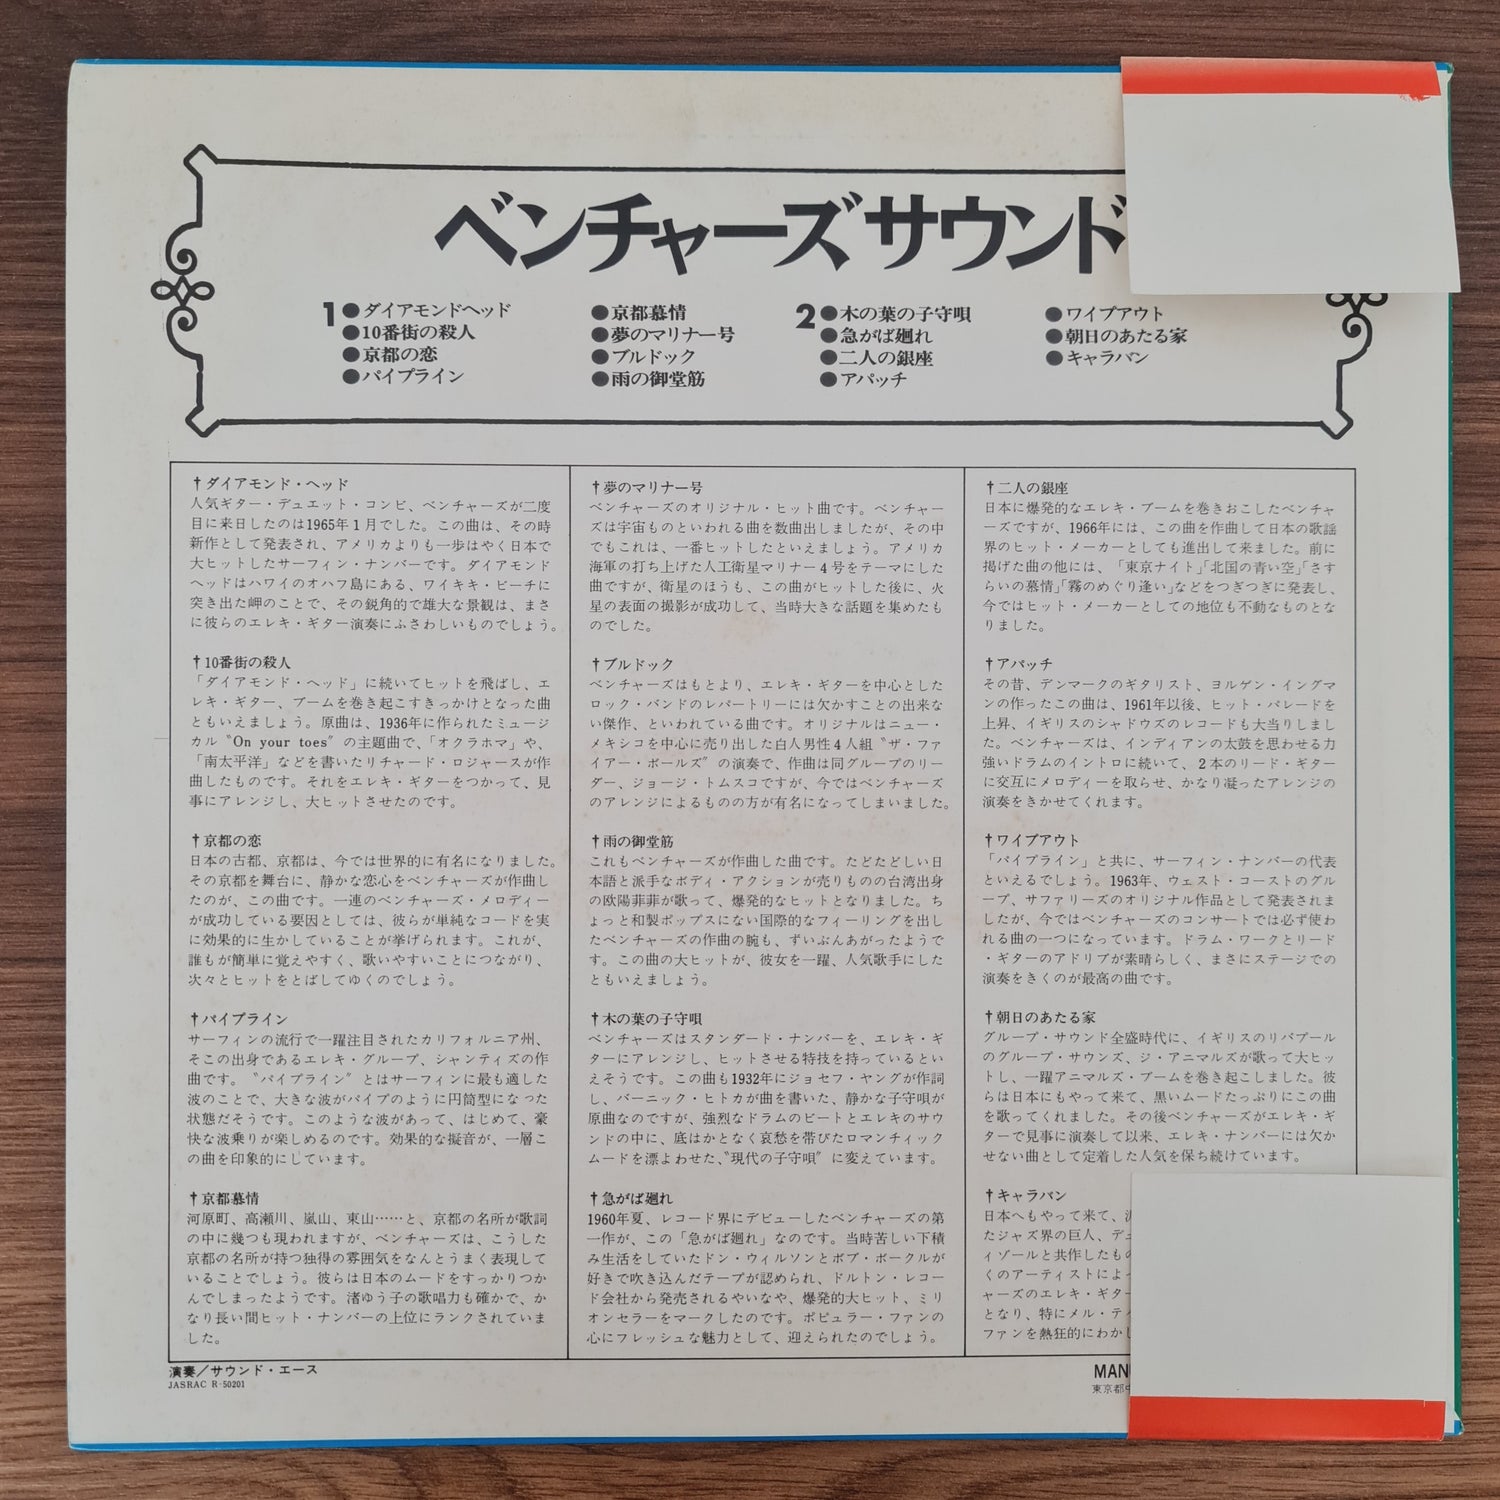 ベンチャーズサウンド
1 ●ダイアモンドヘッド
●10番街の殺人
●京都の恋
●パイプライン
●京都慕情
●夢のマリナー号
●ブルドック
●雨の御堂筋
2 ●木の葉の子守唄
●急がば廻れ
●二人の銀座
●アパッチ
●ワイプアウト
●朝日のあたる家
●キャラバン
†ダイアモンド・ヘッド
人気ギター・デュエット・コンビ、ベンチャーズが二度
目に来日したのは1965年1月でした。この曲は、その時
新作として発表され、アメリカよりも一歩はやく日本で
大ヒットしたサーフィン・ナンバーです。ダイアモンド
ヘッドはハワイのオハフ島にある、ワイキキ・ビーチに
突き出た岬のことで、その鋭角的で雄大な景観は、まさ
に彼らのエレキ・ギター演奏にふさわしいものでしょう。
†10番街の殺人
「ダイアモンド・ヘッド」に続いてヒットを飛ばし、エ
レキ・ギター、ブームを巻き起こすきっかけとなった曲
ともいえましょう。原曲は、1936年に作られたミュージ
カル〝On your toes〞の主題曲で、「オクラホマ」や、
「南太平洋」などを書いたリチャード・ロジャースが作
曲したものです。それをエレキ・ギターをつかって、見
事にアレンジし、大ヒットさせたのです。
†京都の恋
日本の古都、京都は、今では世界的に有名になりました。
その京都を舞台に、静かな恋心をベンチャーズが作曲し
たのが、この曲です。一連のベンチャーズ・メロディー
が成功している要因としては、彼らが単純なコードを実
に効果的に生かしていることが挙げられます。これが、
誰もが簡単に覚えやすく、歌いやすいことにつながり、
次々とヒットをとばしてゆくのでしょう。
†パイプライン
サーフィンの流行で一躍注目されたカリフォルニア州、
そこの出身であるエレキ・グループ、シャンティズの作
曲です。〝パイプライン〞とはサーフィンに最も適した
波のことで、大きな波がパイプのように円筒型になった
状態だそうです。このような波があって、はじめて、豪
快な波乗りが楽しめるのです。効果的な擬音が、一層こ
の曲を印象的にしています。
†京都慕情
河原町、高瀬川、嵐山、東山……と、京都の名所が歌詞
の中に幾つも現われますが、ベンチャーズは、こうした
京都の名所が持つ独得の雰囲気をなんとうまく表現して
いることでしょう。彼らは日本のムードをすっかりつか
んでしまったようです。渚ゆう子の歌唱力も確かで、か
なり長い間ヒット・ナンバーの上位にランクされていま
した。
†夢のマリナー号
ベンチャーズのオリジナル・ヒット曲です。ベンチャー
ズは宇宙ものといわれる曲を数曲出しましたが、その中
でもこれは、一番ヒットしたといえましょう。アメリカ
海軍の打ち上げた人工衛星マリナー4号をテーマにした
曲ですが、衛星のほうも、この曲がヒットした後に、火
星の表面の撮影が成功して、当時大きな話題を集めたも
のでした。
†ブルドック
ベンチャーズはもとより、エレキ・ギターを中心とした
ロック・バンドのレパートリーには欠かすことの出来な
い傑作、といわれている曲です。オリジナルはニュー・
メキシコを中心に売り出した白人男性4人組〝ザ・ファ
イアー・ボールズ〞の演奏で、作曲は同グループのリー
ダー、ジョージ・トムスコですが、今ではベンチャーズ
のアレンジによるものの方が有名になってしまいました。
†雨の御堂筋
これもベンチャーズが作曲した曲です。たどたどしい日
本語と派手なボディ・アクションが売りものの台湾出身
の欧陽菲菲が歌って、爆発的なヒットとなりました。ち
ょっと和製ポップスにない国際的なフィーリングを出し
たベンチャーズの作曲の腕も、ずいぶんあがったようで
す。この曲の大ヒットが、彼女を一躍、人気歌手にした
ともいえましょう。
†木の葉の子守唄
ベンチャーズはスタンダード・ナンバーを、エレキ・ギ
ターにアレンジし、ヒットさせる特技を持っているとい
えそうです。この曲も1932年にジョセフ・ヤングが作詞
し、バーニック・ヒトカが曲を書いた、静かな子守唄が
原曲なのですが、強烈なドラムのビートとエレキのサウ
ンドの中に、底はかとなく哀愁を帯びたロマンティック
ムードを漂よわせた、〝現代の子守唄〞に変えています。
†急がば廻れ
1960年夏、レコード界にデビューしたベンチャーズの第
一作が、この「急がば廻れ」なのです。当時苦しい下積
み生活をしていたドン・ウィルソンとボブ・ボーグルが
好きで吹き込んだテープが認められ、ドルトン・レコー
ド会社から発売されるやいなや、爆発的大ヒット、ミリ
オンセラーをマークしたのです。ポピュラー・ファンの
心にフレッシュな魅力として、迎えられたのでしょう。
†二人の銀座
日本に爆発的なエレキ・ブームを巻きおこしたベンチャ
ーズですが、1966年には、この曲を作曲して日本の歌謡
界のヒット・メーカーとしても進出して来ました。前に
掲げた曲の他には、「東京ナイト」「北国の青い空」「さす
らいの慕情」「霧のめぐり逢い」などをつぎつぎに発表し、
今ではヒット・メーカーとしての地位も不動なものとな
りました。
†アパッチ
その昔、デンマークのギタリスト、ヨルゲン・イングマ
ンの作ったこの曲は、1961年以後、ヒット・パレードを
上昇、イギリスのシャドウズのレコードも大当りしまし
た。ベンチャーズは、インディアンの太鼓を思わせる力
強いドラムのイントロに続いて、2本のリード・ギター
に交互にメロディーを取らせ、かなり凝ったアレンジの
演奏をきかせてくれます。
†ワイプアウト
「パイプライン」と共に、サーフィン・ナンバーの代表
といえるでしょう。1963年、ウェスト・コーストのグル
ープ、サファリーズのオリジナル作品として発表されま
したが、今ではベンチャーズのコンサートでは必ず使わ
れる曲の一つになっています。ドラム・ワークとリード
・ギターのアドリブが素晴らしく、まさにステージでの
演奏をきくのが最高の曲です。
†朝日のあたる家
グループ・サウンド全盛時代に、イギリスのリバプール
のグループ・サウンズ、ジ・アニマルズが歌って大ヒッ
トし、一躍アニマルズ・ブームを巻き起こしました。彼
らは日本にもやって来て、黒いムードたっぷりにこの曲
を歌ってくれました。その後ベンチャーズがエレキ・ギ
ターで見事に演奏して以来、エレキ・ナンバーには欠か
せない曲として定着した人気を保ち続けています。
†キャラバン
日本へもやって来て、
たジャズ界の巨人、デュ
ィゾールと共作したもの
くのアーティストによ
ャーズのエレキ・ギタ
となり、特にメル・テイ
ファンを熱狂的にわか
演奏／サウンド・エース
JASRAC R-50201
MAN
東京都